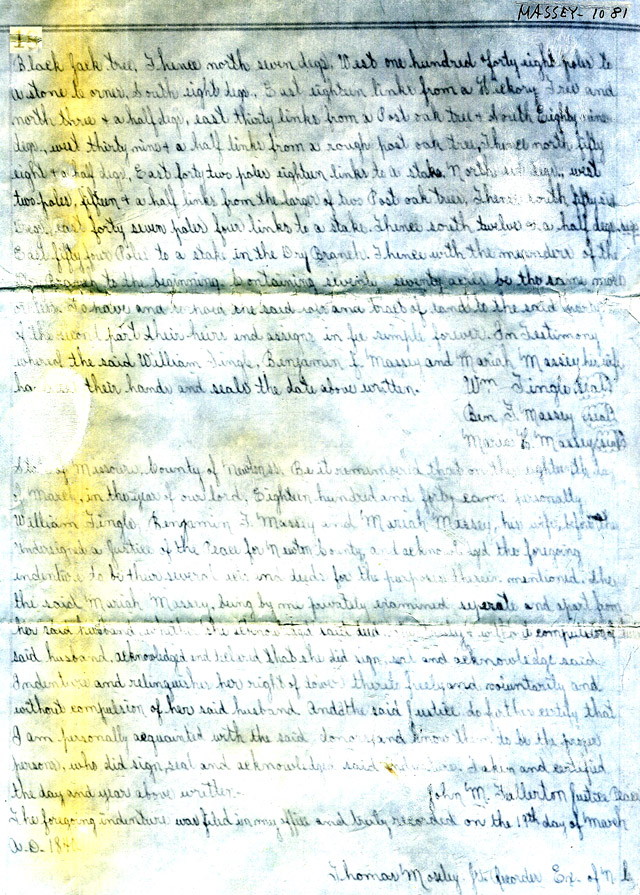 MASSEY - 1081
Black Jack tree, Thence north seven degs, West one hundred & forty eight poles to
a stone Corner, South eight degs, East eighteen links from a Hickory Tree and
north three & a half degs, east thirty links from a Post oak tree & South Eighty nine
degs, west thirty nine & a half links from a rough post oak tree, Thence north fifty
eight & a half degs, East forty two poles eighteen links to a stake. North degs, west
two poles, fifteen & a half links from the larger of two Post oak trees, Thence south fifty
degs, east forty seven poles four links to a stake. Thence south twelve & a half degs,
East fifty four Poles to a stake in the Dry Branch. Thence with the meanders of the
to the beginning. Containing seventy, seventy acres be the same more
or less. To have and to hold the said and tract of land to the said
of the second part their heirs and assigns in fee simple forever. In Testimony
whereof the said William Tingle, Benjamin F. Massey and Mariah Massey his wife
their hands and seals the date above written. Wm Tingle Seal
Ben F Massey Seal
Maria E Massey Seal
State of Missouri, County of Newton, Be it remembered that on the eighteenth day
of March, in the year of our lord, Eighteen hundred and forty came personally
William Tingle, Benjamin F. Massey and Mariah Massey, his wife, before me
Undersigned a Justice of the Peace for Newton County, and acknowledged the foregoing
indenture to be their several acts and deeds for the purposes therein mentioned. She
the said Mariah Massey, being by me privately examined seperate and apart from
her said husband, whether she said deed compulsion of
said husband, acknowledged and declared that she did sign, seal and acknowledge said
Indenture and relinquisher her right of dower thereto freely and voluntarily and
without compulsion of her said husband. And the said Justice do further certify that
I am personally acquainted with the said donors, and know them to be the proper
persons, who did sign, seal and acknowledged said indenture, Taken and certified
the day and year above written. John M. Fullerton Justice Peace
The foregoing indenture was filed in my office and truly recorded on the 19th day of March
A.D. 184
Thomas Mosley Jr. Recorder Ex. of N. C.